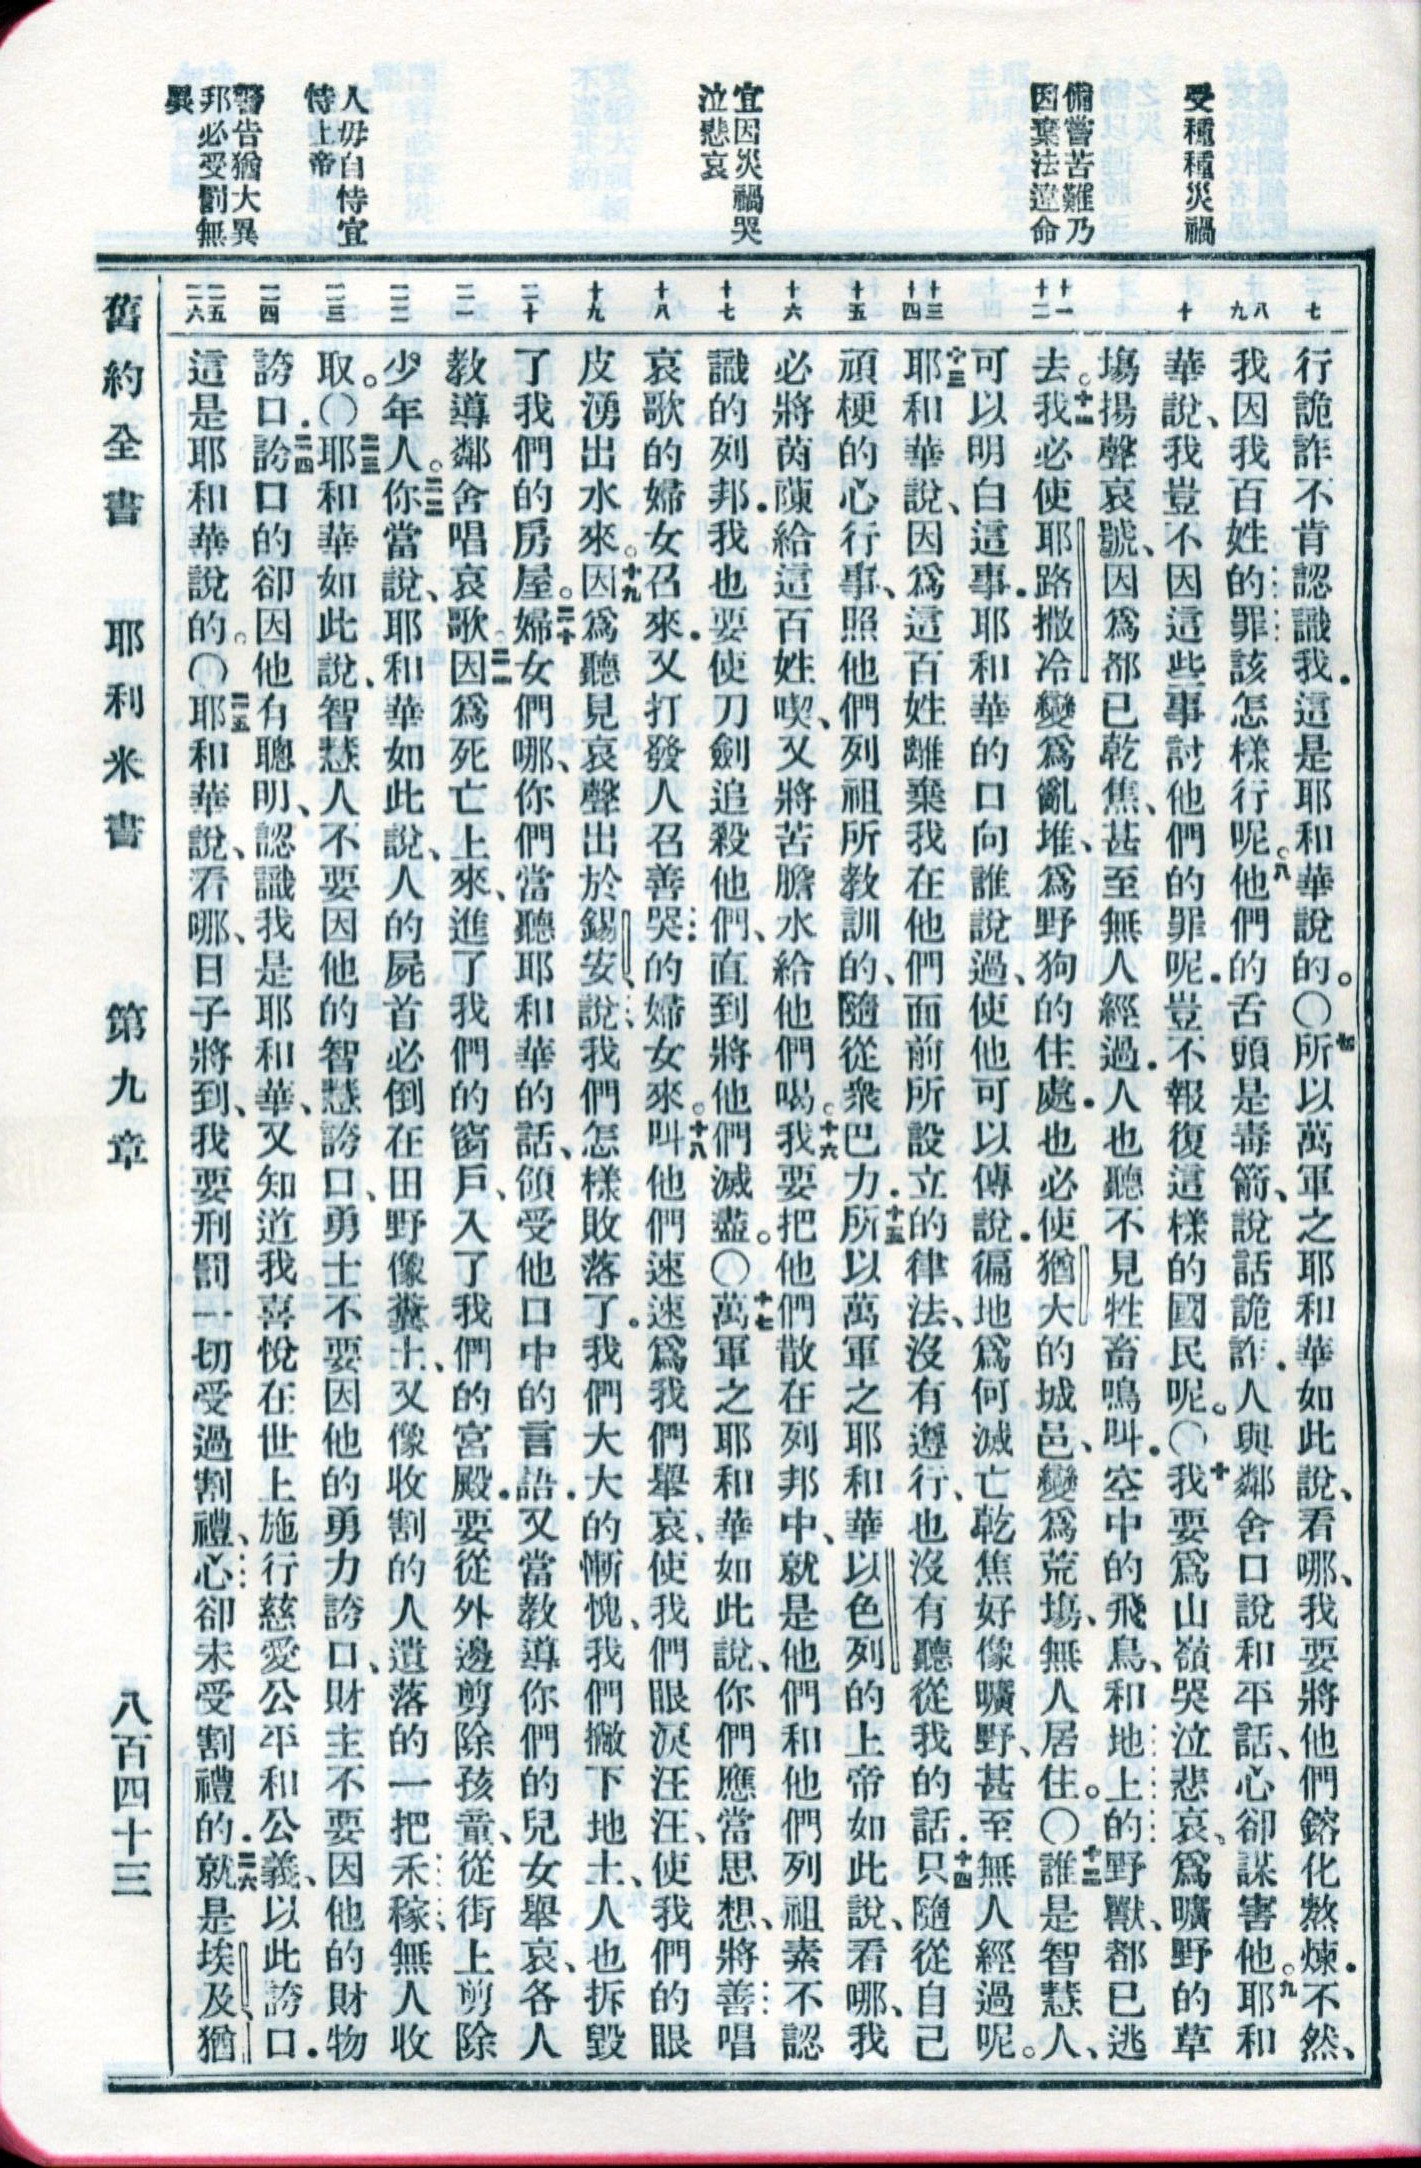 受種種災禍
備嘗苦難乃
因棄法違命
宜因災禍哭
泣悲哀
人毋自恃宜
恃上帝
警告猶大異
邦必受罰無
異
七
八
九
十
十一
十二
十三
十四
十五
十六
十七
十八
十九
二十
二一
二二
二三
二四
二五
二六
行詭詐不肯認識我．這是耶和華說的。〇七所以萬軍之耶和華如此說、看哪、我要將他們鎔化熬煉．不然、
我因我百姓的罪該怎樣行呢。八他們的舌頭是毒箭、說話詭詐．人與鄰舍口說和平話、心卻謀害他。九耶和
華說、我豈不因這些事討他們的罪呢．豈不報復這樣的國民呢。〇十我要爲山嶺哭泣悲哀、爲曠野的草
塲揚聲哀號、因爲都已乾焦、甚至無人經過．人也聽不見牲畜鳴叫．空中的飛鳥、和地上的野獸、都已逃
去。十一我必使耶路撒冷變爲亂堆、爲野狗的住處．也必使猶大的城邑、變爲荒塲、無人居住。〇十二誰是智慧人、
可以明白這事．耶和華的口向誰說過、使他可以傳說．徧地爲何滅亡乾焦好像曠野、甚至無人經過呢。
十三耶和華說、因爲這百姓離棄我在他們面前所設立的律法、沒有遵行、也沒有聽從我的話．十四只隨從自己
頑梗的心行事、照他們列祖所教訓的、隨從衆巴力．十五所以萬軍之耶和華以色列的上帝如此說、看哪、我
必將茵蔯給這百姓喫、又將苦膽水給他們喝。十六我要把他們散在列邦中、就是他們和他們列祖素不認
識的列邦．我也要使刀劍追殺他們、直到將他們滅盡。〇十七萬軍之耶和華如此說、你們應當思想、將善唱
哀歌的婦女召來．又打發人召善哭的婦女來。十八叫他們速速爲我們舉哀、使我們眼淚汪汪、使我們的眼
皮湧出水來。十九因爲聽見哀聲出於錫安、說、我們怎樣敗落了．我們大大的慚愧、我們撇下地土、人也拆毀
了我們的房屋。二十婦女們哪、你們當聽耶和華的話、領受他口中的言語．又當教導你們的兒女舉哀、各人
教導鄰舍唱哀歌。二一因爲死亡上來、進了我們的窗戶、入了我們的宮殿．要從外邊剪除孩童、從街上剪除
少年人。二二你當說、耶和華如此說、人的屍首必倒在田野像糞土、又像收割的人遺落的一把禾稼、無人收
取。〇二三耶和華如此說、智慧人不要因他的智慧誇口、勇士不要因他的勇力誇口、財主不要因他的財物
誇口．二四誇口的卻因他有聰明、認識我是耶和華、又知道我喜悅在世上施行慈愛公平和公義、以此誇口．
這是耶和華說的。〇二五耶和華說、看哪、日子將到、我要刑罰一切受過割禮、心卻未受割禮的．二六就是埃及、猶
舊約全書　耶利米書　第九章　八百四十三